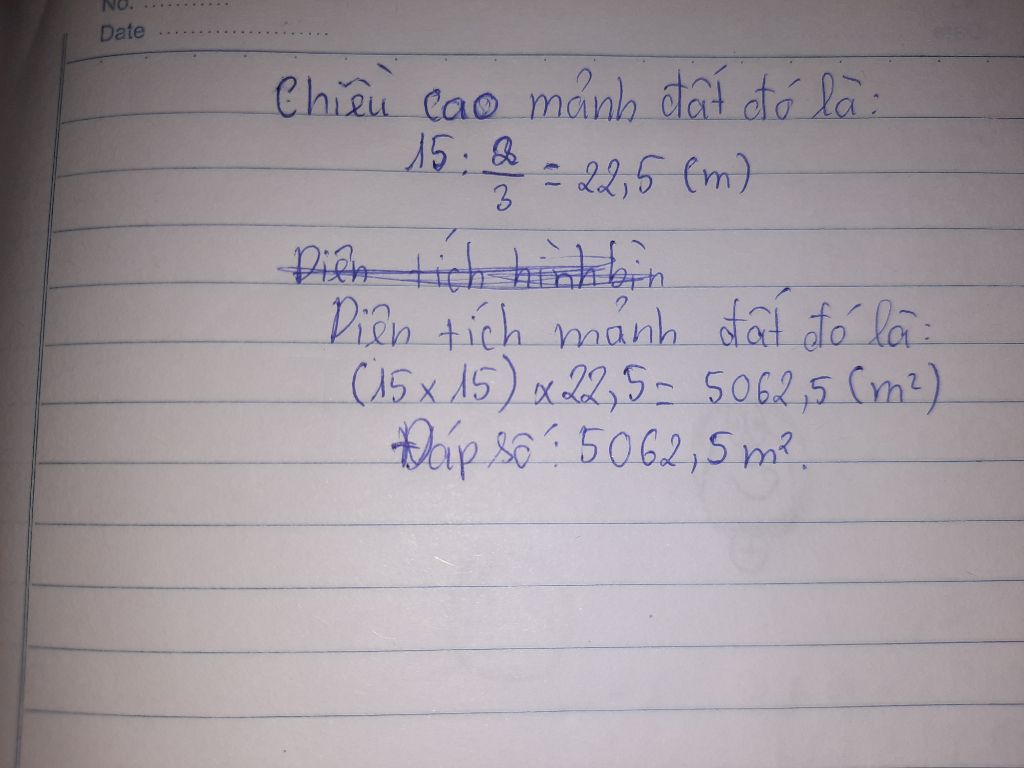 No. ............
Date ........................
Chiều cao mảnh đất đó là:
15 : 2/3 = 22,5 (m)
Diện tích hình bìn
Diện tích mảnh đất đó là:
(15 x 15) x 22,5 = 5062,5 (m²)
Đáp số: 5062,5 m².